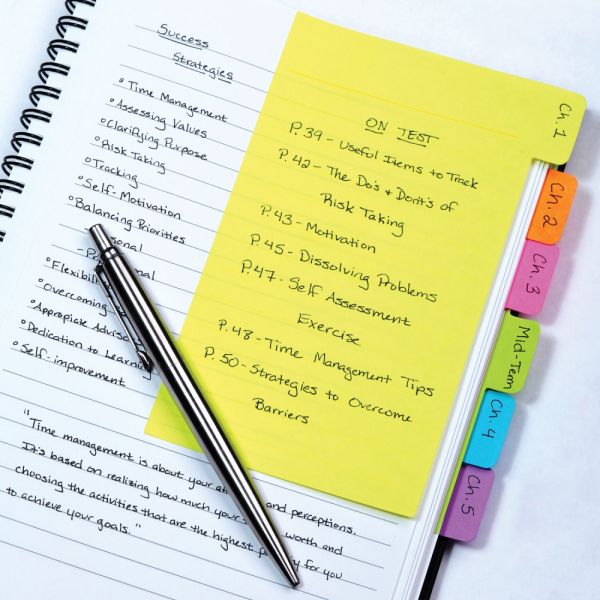 Success
Strategies
° Time Management
° Assessing Values
° Clarifying Purpose
° Risk Taking
° Tracking
° Self-Motivation
° Balancing Priorities
° Flexibility
° Overcoming
° Appropick Advise
° Dedication to Learning
° Self-improvement
"Time management is about your and perceptions.
It's based on realizing how much your worth and
choosing the activities that are the highest for you
to achieve your goals."
ON TEST
P. 39 - Useful Items to Track
P. 42 - The Do's & Dont's of
Risk Taking
P. 43 - Motivation
P. 45 - Dissolving Problems
P. 47 - Self Assessment
Exercise
P. 48 - Time Management Tips
P. 50 - Strategies to Overcome
Barriers
Ch. 1
Ch. 2
Ch. 3
Mid-Term
Ch. 4
Ch. 5